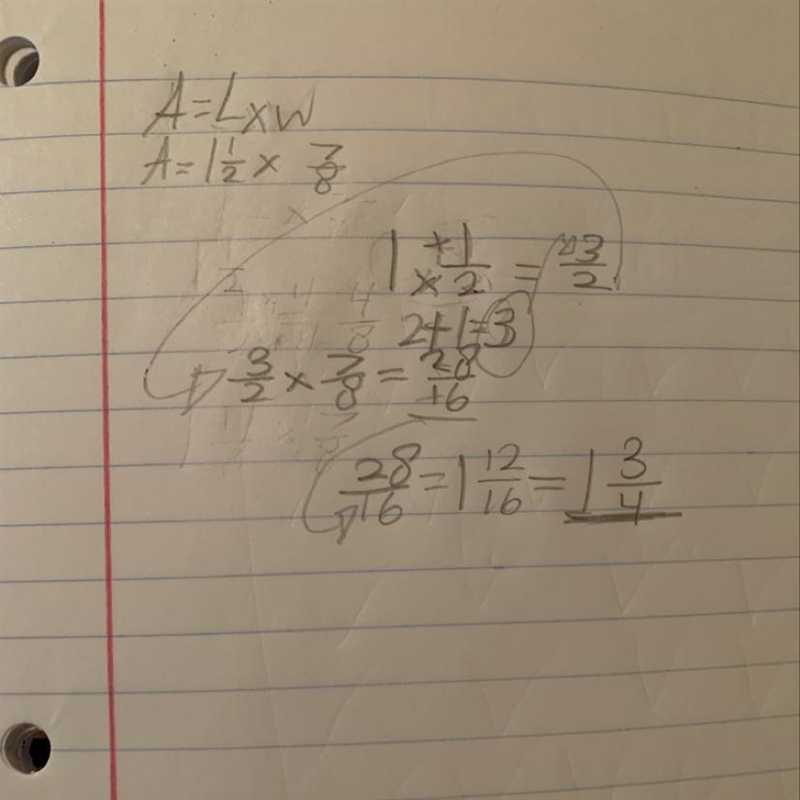 A=LxW
A=1 1/2 x 7/8
1 + x 1/2 = 3/2
2+1=3
3/2 x 7/8 = 28/16
28/16 = 1 12/16 = 1 3/4